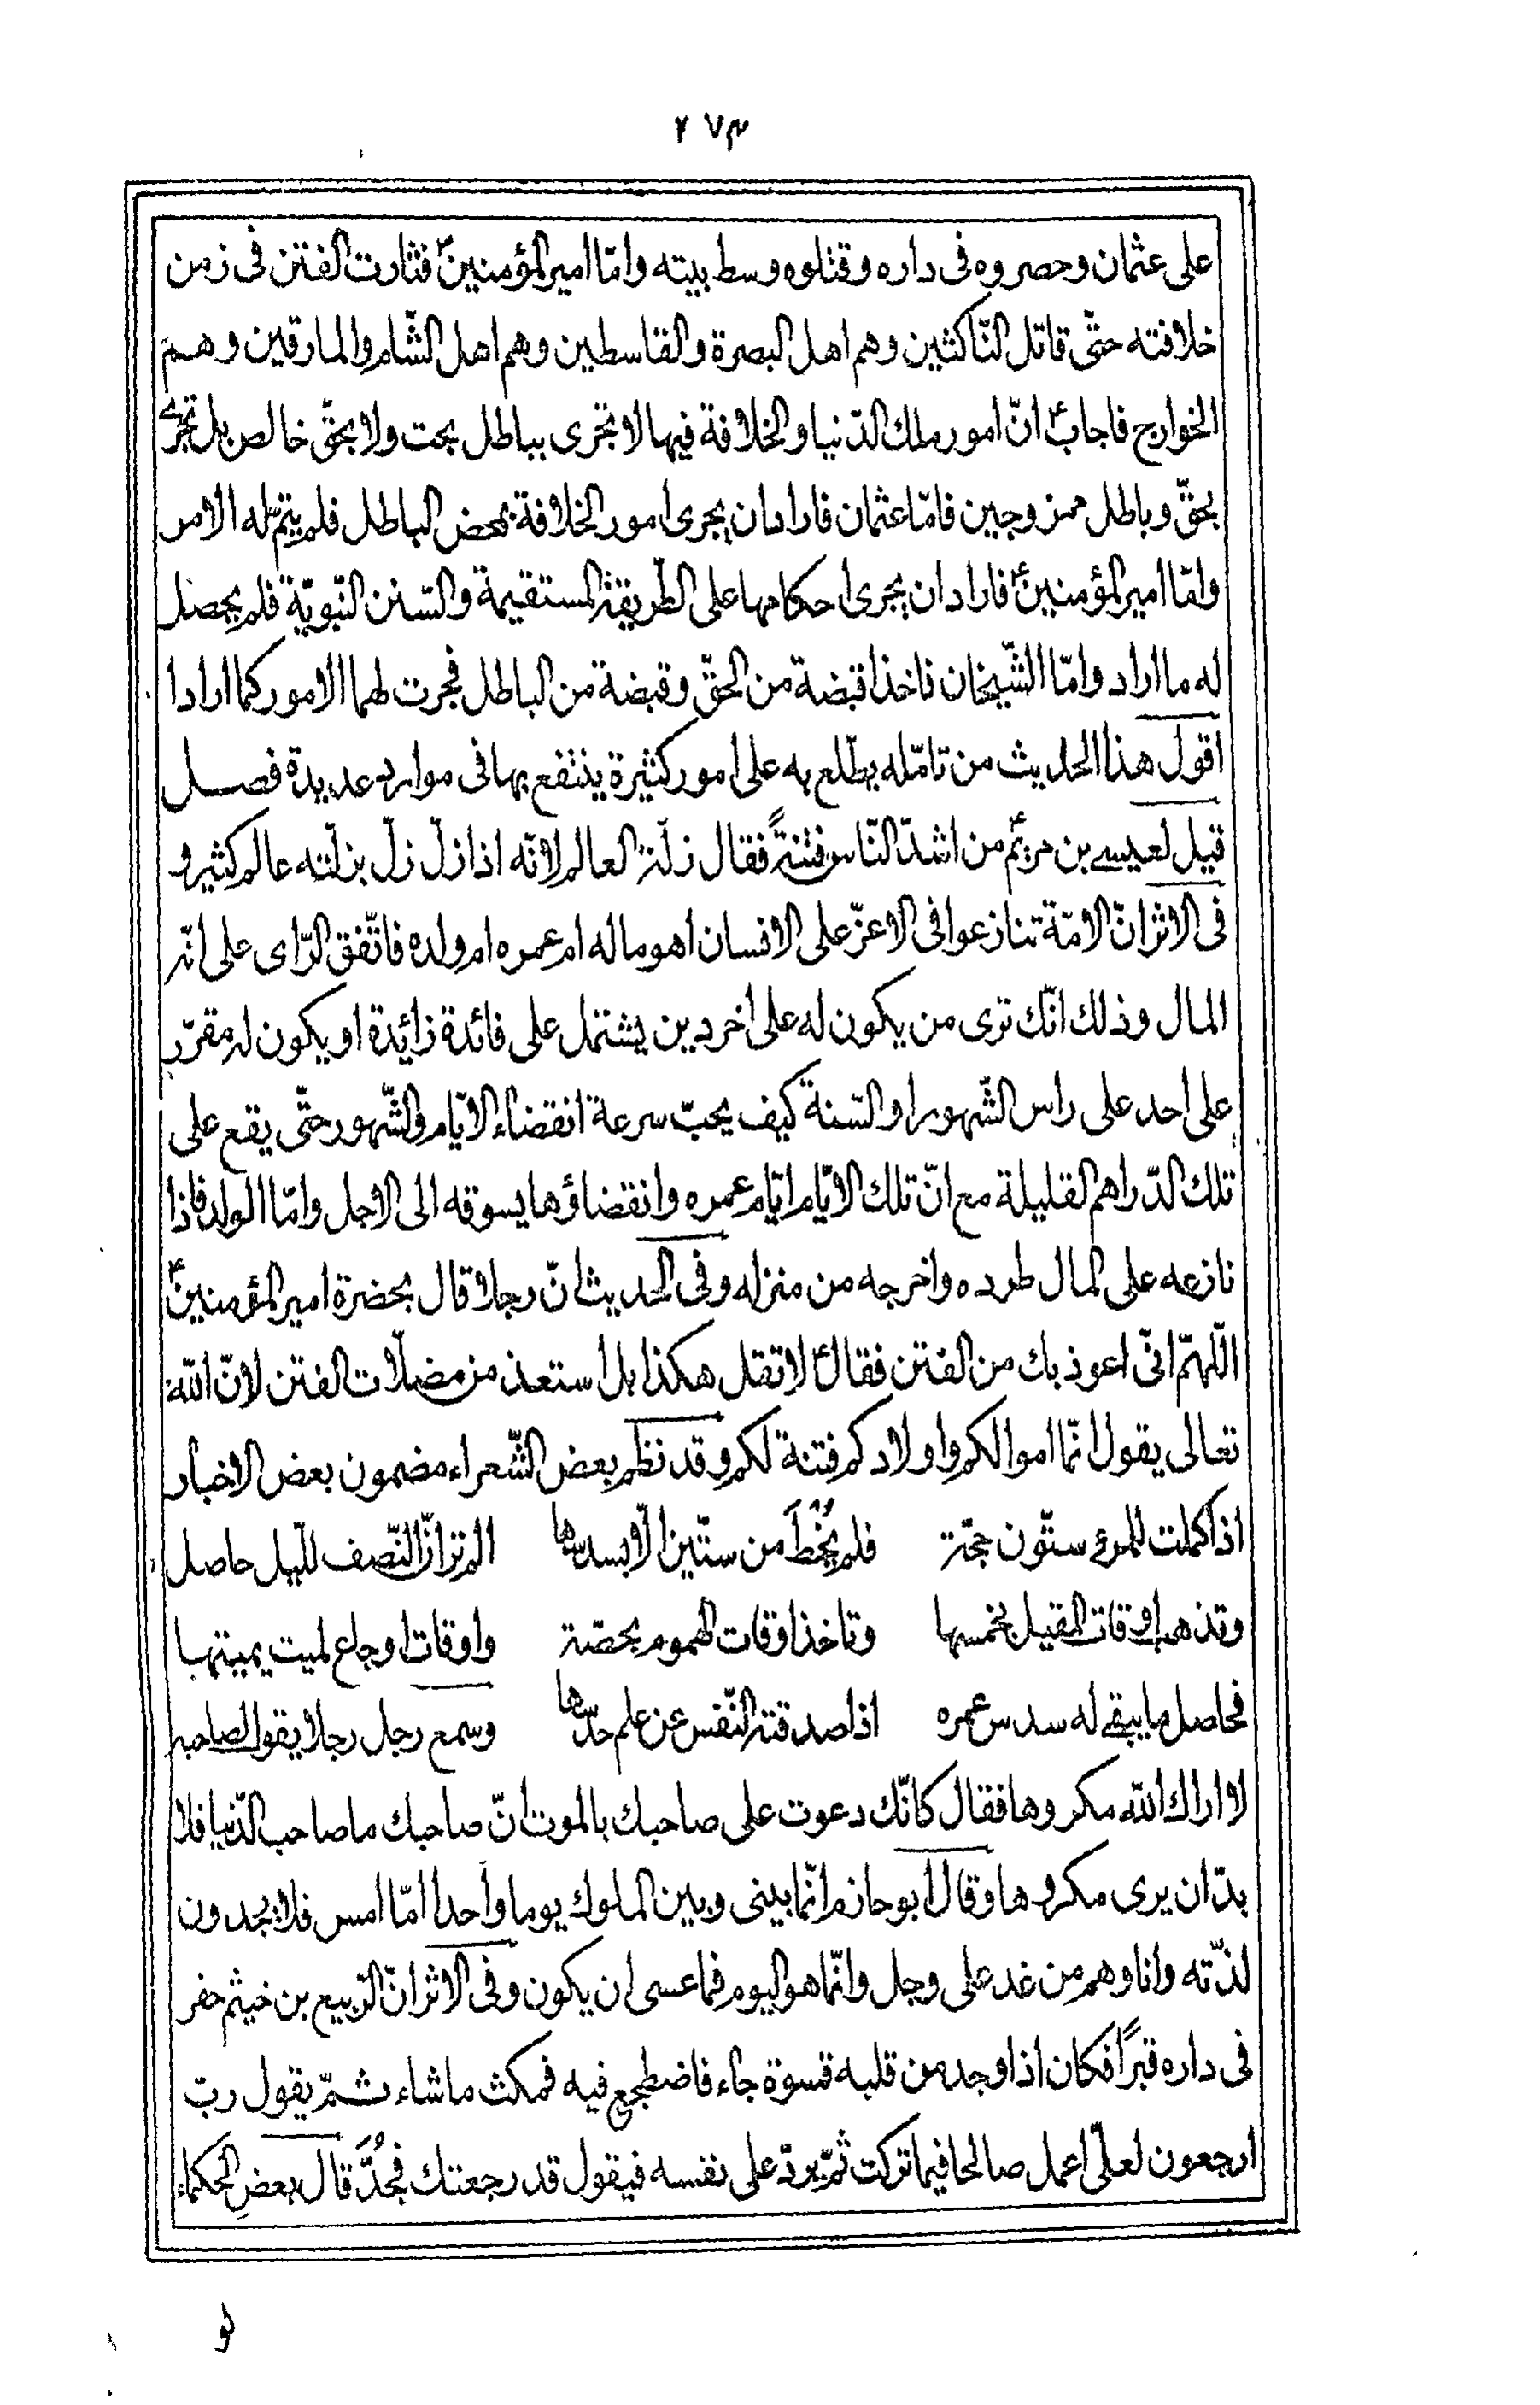 ٢٧٣
على عثمان وحصروه فى داره وقتلوه وسط بيته وامّا امير المؤمنينؑ فثارت الفتن فى زمن
خلافته حتّى قاتل النّاكثين وهم اهل البصرة والقاسطين وهم اهل الشّام والمارقين وهم
الخوارج فاجابؑ انّ امور ملك الدّنيا والخلافة فيها لا تجرى بباطل بحت ولا بحقّ خالص بل تجرى
بحقّ وباطل ممزوجين فامّا عثمان فاراد ان يجرى امور الخلافة بمحض الباطل فلم يتمّ له الامر
وامّا امير المؤمنينؑ فاراد ان يجرى احكامها على الطّريقة المستقيمة والسّنن النّبويّة فلم يحصل
له ما اراد وامّا الشّيخان فاخذا قبضة من الحقّ وقبضة من الباطل فجرت لهما الامور كما ارادا
اقول هذا الحديث من تامّله يطّلع به على امور كثيرة ينتفع بها فى موارد عديدة فصل
قيل لعيسى بن مريمؑ من اشدّ النّاس فتنةً فقال زلّة العالم لانّه اذا زلّ زلّ بزلّته عالم كثير و
فى الاثر انّ الامّة تنازعوا فى الاعزّ على الانسان اهو ماله ام عمره ام ولده فاتّفق الرّاى على انّه
المال وذلك انّك ترى من يكون له على اخر دين يشتمل على فائدة زائدة او يكون له مقرّر
على احد على راس الشّهور او السّنة كيف يحبّ سرعة انقضاء الايّام والشّهور حتّى يقع على
تلك الدّراهم القليلة مع انّ تلك الايّام ايّام عمره وانقضاؤها يسوقه الى الاجل وامّا الولد فاذا
نازعه على المال طرده واخرجه من منزله وفى الحديث انّ رجلا قال بحضرة امير المؤمنينؑ
اللّهمّ انّى اعوذ بك من الفتن فقالؑ لا تقل هكذا بل استعذ من مضلّات الفتن لانّ اللّه
تعالى يقول انّما اموالكم واولادكم فتنة لكم وقد نظم بعض الشّعراء مضمون بعض الاخبار
اذا كملت للمرؤ ستّون حجّة فلم يُخْطَ من ستّين الّا بسدسها الم تر انّ النّصف للّيل حاصل
وتذهب اوقات المقيل بخمسها وتاخذ اوقات الهموم بحصّة واوقات اوجاع لميت يميتها
فحاصل ما يبقى له سدس عمره اذا صدقته النّفس عن علم حدّسها وسمع رجل رجلا يقول لصاحبه
لا اراك اللّه مكروها فقال كانّك دعوت على صاحبك بالموت انّ صاحبك ما صاحب الدّنيا فلا
بدّ ان يرى مكروها وقال ابو حازم انّما بينى وبين الملوك يوما واحدا امّا امس فلا يجدون
لذّته وانا وهم من غد على وجل وانّما هو اليوم فما عسى ان يكون وفى الاثر انّ الرّبيع بن خيثم حفر
فى داره قبرًا فكان اذا وجد من قلبه قسوة جاء فاضطجع فيه فمكث ما شاء ثمّ يقول ربّ
ارجعون لعلّى اعمل صالحا فيما تركت ثمّ يردّ على نفسه فيقول قد رجعتك فجُدَّ قال بعض الحكماء
لو